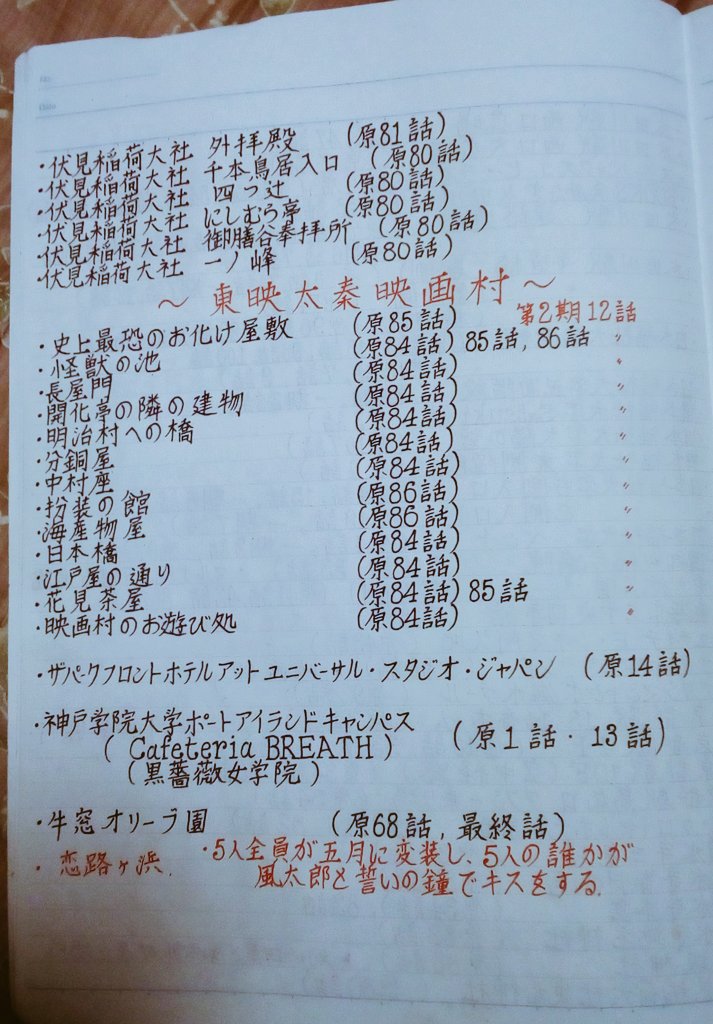 No.
Date
・伏見稲荷大社 外拝殿 (原81話)
・伏見稲荷大社 千本鳥居入口 (原80話)
・伏見稲荷大社 四つ辻 (原80話)
・伏見稲荷大社 にしむら亭 (原80話)
・伏見稲荷大社 御膳谷奉拝所 (原80話)
・伏見稲荷大社 一ノ峰 (原80話)
〜 東映太秦映画村 〜
・史上最恐のお化け屋敷 (原85話) 第2期12話
・怪獣の池 (原84話) 85話, 86話 〃
・長屋門 (原84話) 〃
・開化亭の隣の建物 (原84話) 〃
・明治村への橋 (原84話) 〃
・分銅屋 (原84話) 〃
・中村座 (原84話) 〃
・扮装の館 (原86話) 〃
・海産物屋 (原86話) 〃
・日本橋 (原84話) 〃
・江戸屋の通り (原84話) 〃
・花見茶屋 (原84話) 85話 〃
・映画村のお遊び処 (原84話) 〃
・ザパークフロントホテルアットユニバーサル・スタジオ・ジャパン (原14話)
・神戸学院大学ポートアイランドキャンパス
( Cafeteria BREATH ) (原1話・13話)
( 黒薔薇女学院 )
・牛窓オリーブ園 (原68話, 最終話)
・恋路ヶ浜. ・5人全員が五月に変装し、5人の誰かが
風太郎と誓いの鐘でキスをする.